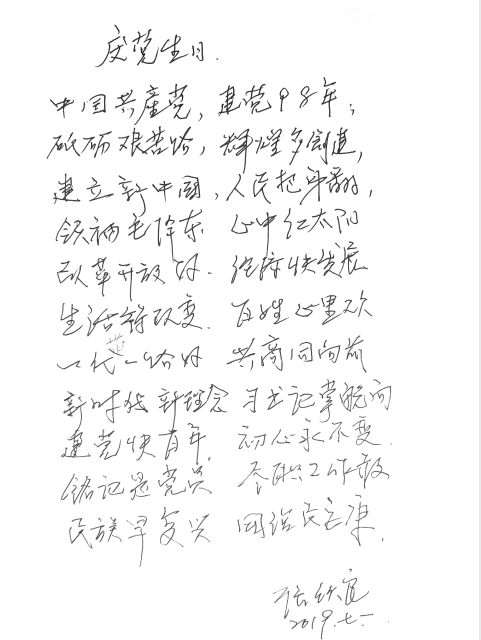 庆党生日.
中国共產党，建党98年；
砥砺艰苦路，輝煌多創建，
建立新中國，人民把身翻，
领袖毛泽东 心中红太阳
改革开放好. 经济快发展
生活待改变. 百姓心里欢
一代一路好 共商同向前
新时代新理念 习书记掌舵向
建党快百年, 初心永不变.
铭记是党员 本职工作敬
民族早复兴 国强民立康.
2019.七一.